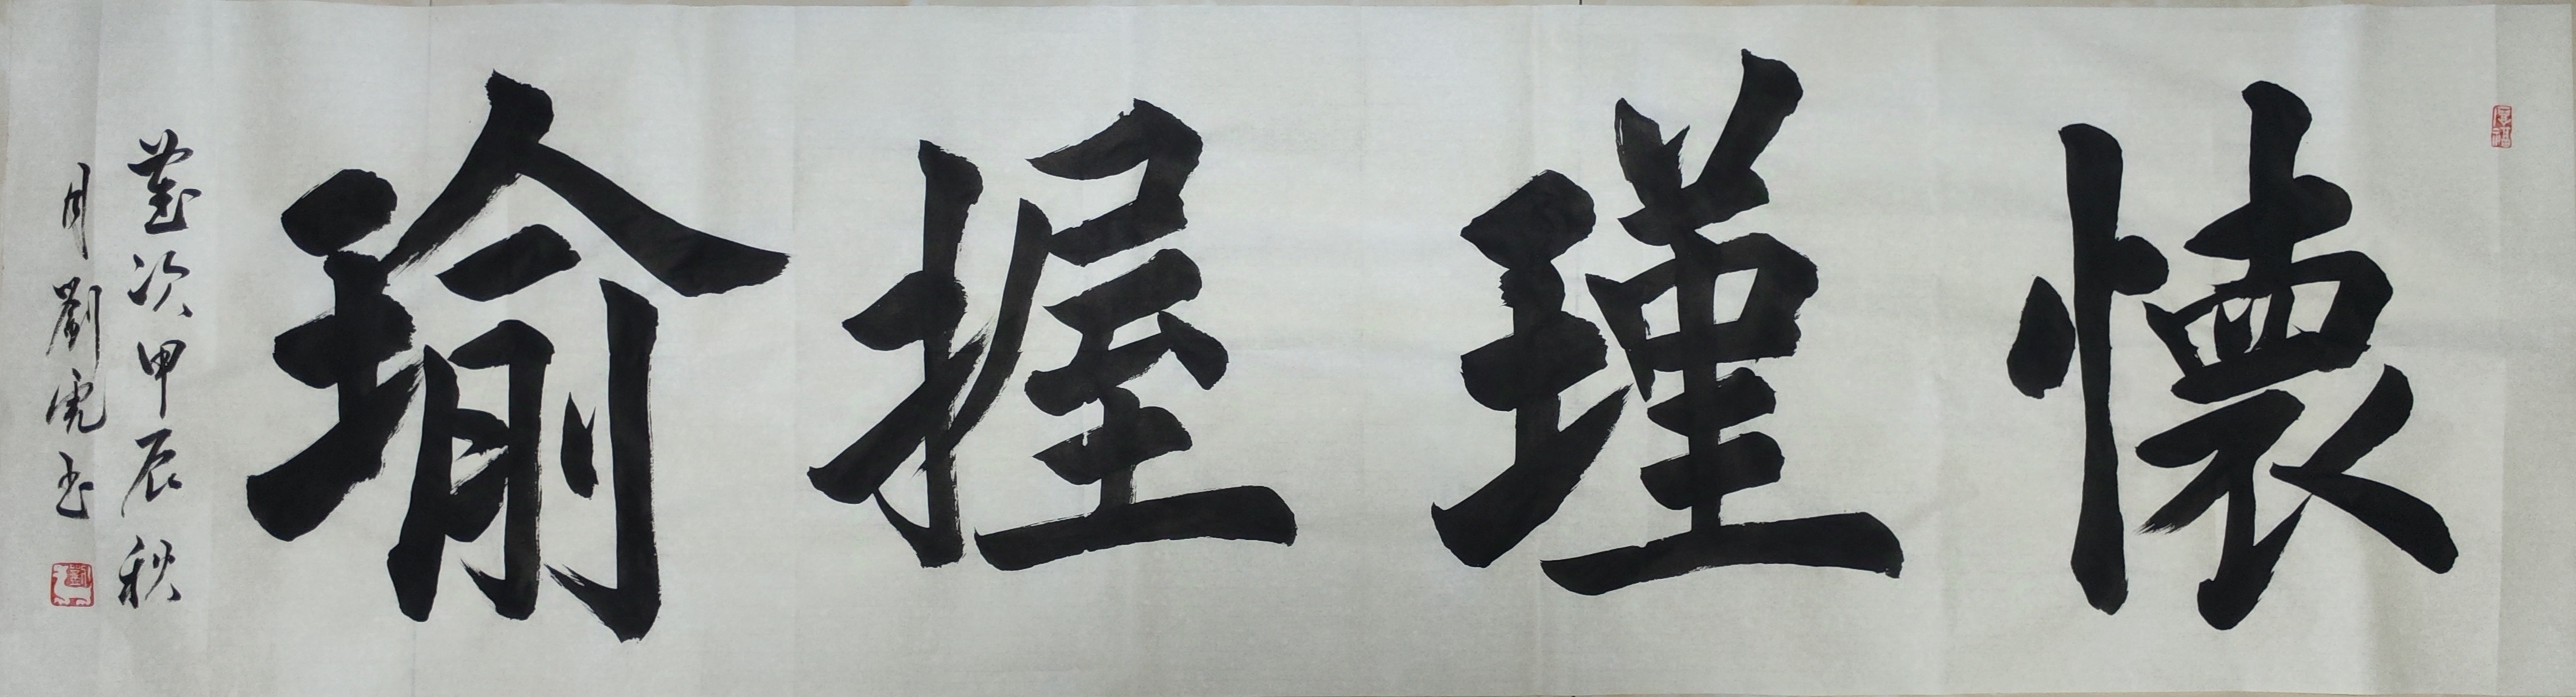 懷瑾握瑜
歲次甲辰秋
月劉虎書